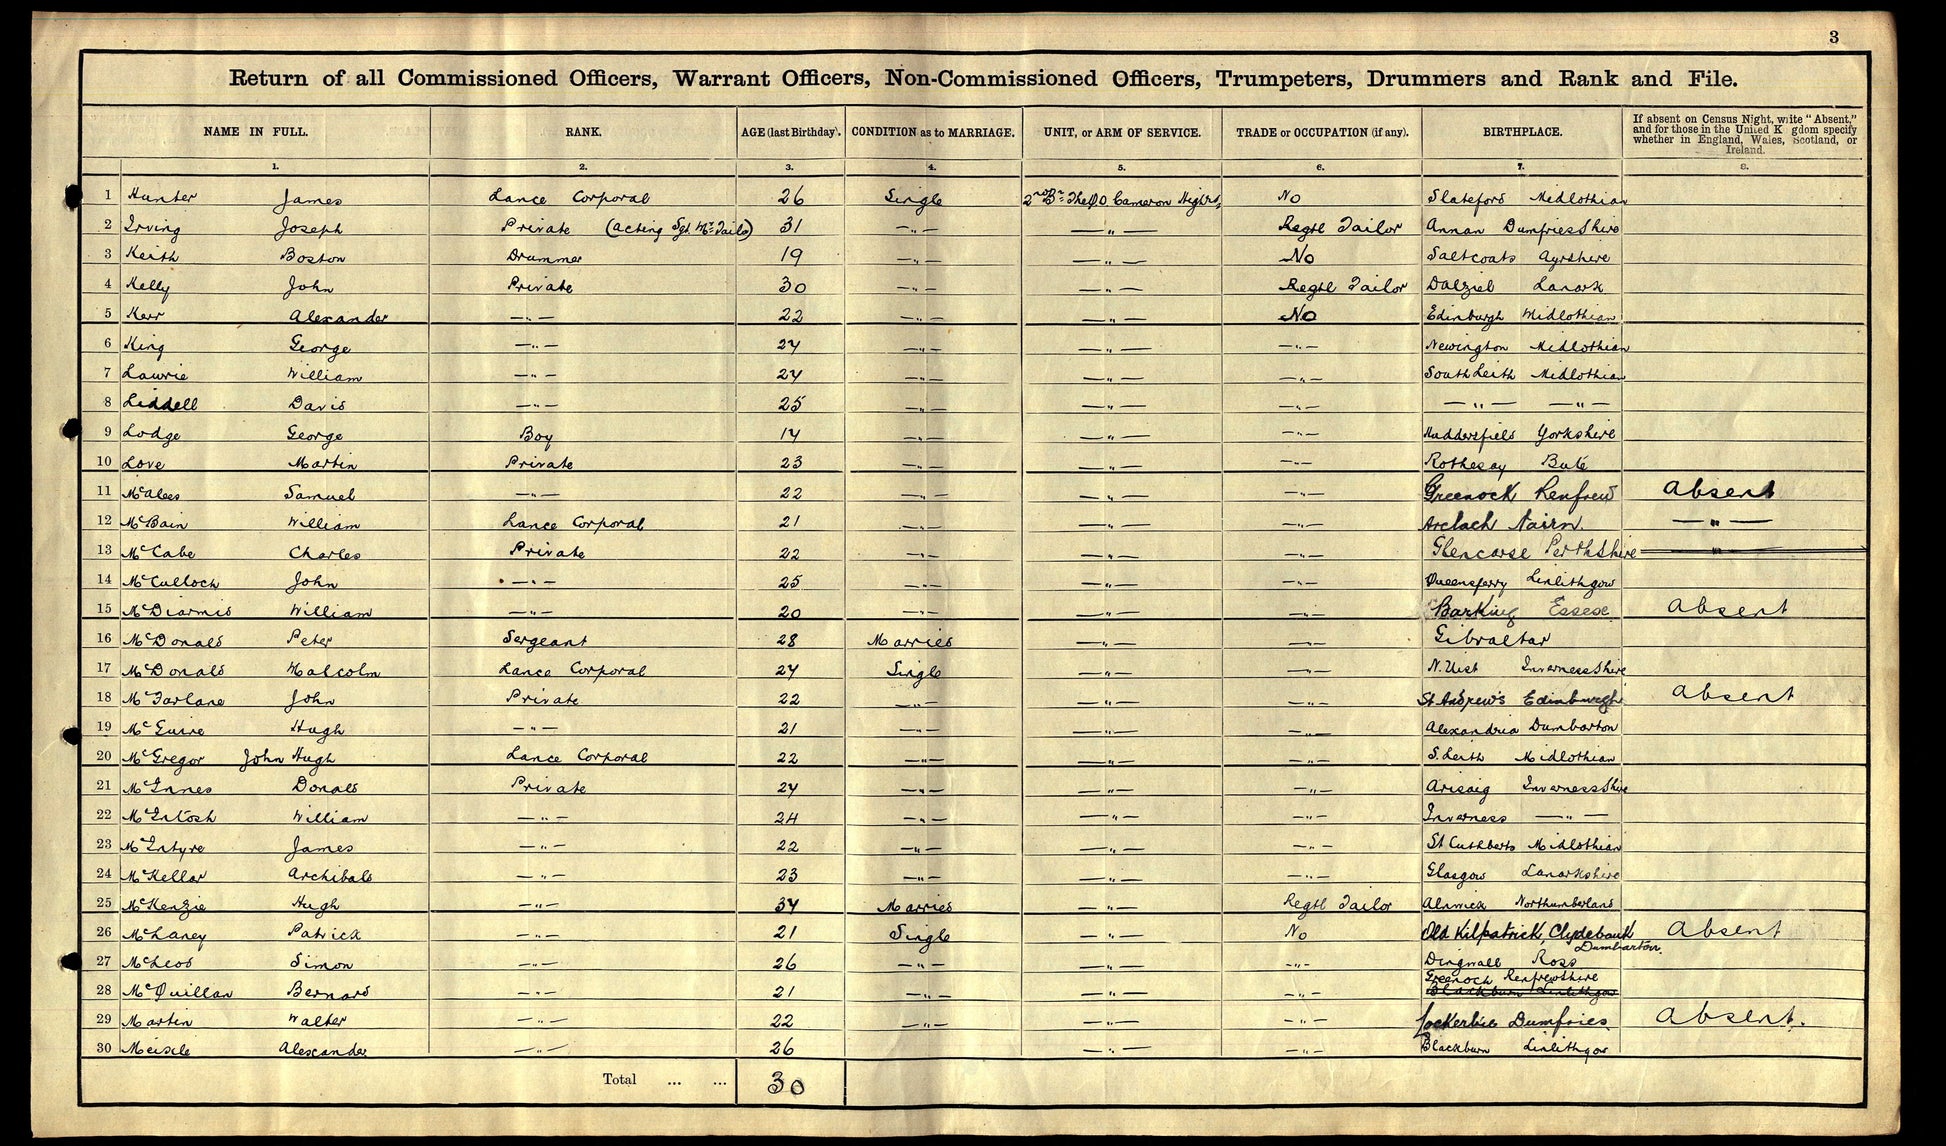 3
Return of all Commissioned Officers, Warrant Officers, Non-Commissioned Officers, Trumpeters, Drummers and Rank and File.
NAME IN FULL. RANK. AGE (last Birthday). CONDITION as to MARRIAGE. UNIT, or ARM OF SERVICE. TRADE or OCCUPATION (if any). BIRTHPLACE. If absent on Census Night, write "Absent," and for those in the United K gdom specify whether in England, Wales, Scotland, or Ireland.
1. 2. 3. 4. 5. 6. 7. 8.
1 Hunter James Lance Corporal 26 Single 2nd Bn The Q.O. Cameron Highrs, No Slateford Midlothian
2 Irving Joseph Private (acting Sgt. Mr. Tailo) 31 —"— —"— Regtl Tailor Annan DumfriesShire
3 Keith Boston Drummer 19 —"— —"— No Saltcoats Ayrshire
4 Kelly John Private 30 —"— —"— Regtl Tailor Dalziel Lanark
5 Kerr Alexander —"— 22 —"— —"— No Edinburgh Midlothian
6 King George —"— 24 —"— —"— —"— Newington Midlothian
7 Lawrie William —"— 24 —"— —"— —"— South Leith Midlothian
8 Liddell David —"— 25 —"— —"— —"— —"— —"—
9 Lodge George Boy 14 —"— —"— —"— Huddersfield Yorkshire
10 Love Martin Private 23 —"— —"— —"— Rothesay Bute
11 McAlees Samuel —"— 22 —"— —"— —"— Greenock Renfrew Absent
12 McBain William Lance Corporal 21 —"— —"— —"— Arclach Nairn. —"—
13 McCabe Charles Private 22 —"— —"— —"— Glencarse Perthshire —"—
14 McCulloch John —"— 25 —"— —"— —"— Queensferry Linlithgow
15 McDiarmid William —"— 20 —"— —"— —"— Barking Essex Absent
16 McDonald Peter Sergeant 28 Married —"— —"— Gibraltar
17 McDonald Malcolm Lance Corporal 24 Single —"— —"— N. Uist InvernessShire
18 McFarlane John Private 22 —"— —"— —"— St Andrew's Edinburgh Absent
19 McGuire Hugh —"— 21 —"— —"— —"— Alexandria Dumbarton
20 McGregor John Hugh Lance Corporal 22 —"— —"— —"— S. Leith Midlothian
21 McInnes Donald Private 24 —"— —"— —"— Arisaig InvernessShire
22 McIntosh William —"— 24 —"— —"— —"— Inverness —"—
23 McIntyre James —"— 22 —"— —"— —"— St Cuthberts Midlothian
24 McKellar Archibald —"— 23 —"— —"— —"— Glasgow Lanarkshire
25 McKenzie Hugh —"— 34 Married —"— Regtl Tailor Alnwick Northumberland
26 McLaney Patrick —"— 21 Single —"— No Old Kilpatrick, Clydebank Absent
Dumbarton.
27 McLeod Simon —"— 26 —"— —"— —"— Dingwall Ross
Greenock Renfrewshire
28 McQuillan Bernard —"— 21 —"— —"— —"— Blackburn Linlithgow
29 Martin Walter —"— 22 —"— —"— —"— Lockerbie Dumfries Absent.
30 Meikle Alexander —"— 26 —"— —"— Blackburn Linlithgow
Total ... ... 30